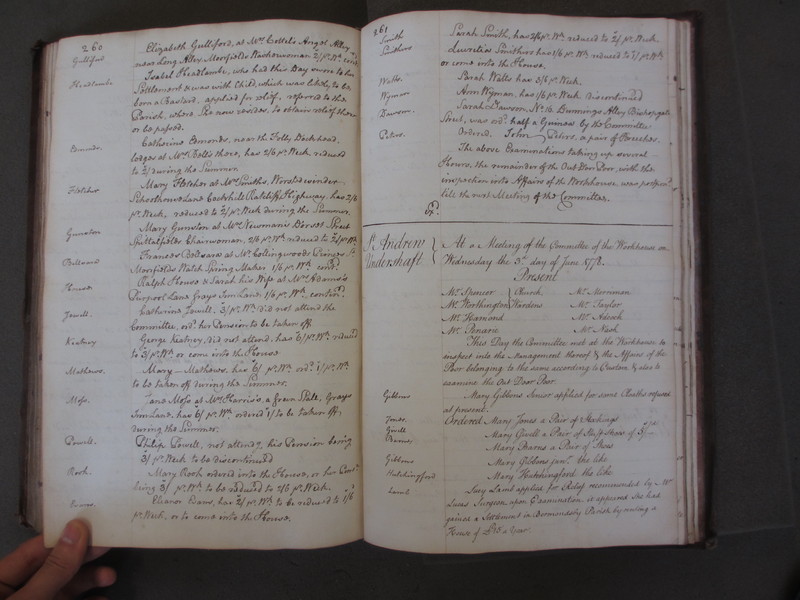 260
Gulliford
Elizabeth Gulliford, at Mrs Cottels Angel Alley
near Long Alley Morfields Washerwoman 2/ pr. Wk. cont
Headlambe
Isabel Headlambe, who had this Day sworn to her
Settlement & was with Child, which was likely to be
born a Bastard, applied for relief, referred to the
Parish, where she now resides, to obtain relief there
or be passed.
Edmonds.
Catherine Edmonds, near the Folly Dockhead,
lodges at Mr Bolts there, has 2/6 pr. Week reduced
to 2/ during the Summer.
Fletcher
Mary Fletcher at Mr Smiths,
Ratcliff Highway, has 2/6
pr. Week, reduced to 2/ pr. Week during the Summer.
Gunston
Mary Gunston at Mr Newmans Dorset Street
Spittalfields Chairwoman, 2/6 pr. Wk reduced to 2/ pr. Wk.
Francis at Mr Collingwoods
Morfields Watch Spring Maker 1/6 pr. Wk. cont.
House.
Ralph House & Sarah his Wife at Mr Adams's
Purpool Lane Grays Inn Lane, 1/6 pr. Wk. contin.
Jewell.
Catherine Jewell, 3/ Wk did not attend the
Committee, ord. her Pension to be taken off
Keatney
George Keatney, did not attend, has 6/ pr. Wk. reduced
to 3/ pr. Wk or come into the House
Mathews.
Mary Mathews, has 6/ pr. Wk. ord. 1/ pr. Wk.
to be taken off during the Summer.
Moss.
Jane Moss at Mr Harris's, a Green Stall, Grays
Inn Lane, has 6/ pr. Wk. ordered 1/ to be taken off
during the Summer.
Powell.
Philip Powell, not attendg, his Pension being
3/ pr. Week to be discontinued
Rook
Mary Rook ordered into the House, or her Pens.
being 3/ pr. Wk. to be reduced to 2/6 pr. Week.
Evans.
Eleanor Evans, has 2/ pr. Wk. to be reduced to 1/6
pr. Week, or to come into the House.
261
Smith
Sarah Smith, has 2/6 pr. Wk. reduced to 2/ pr. Week.
Smithers
Lucretia Smithers has 1/6 pr. Wk. reduced to 1/ pr. Wk
or come into the House.
Watts.
Sarah Watts has 3/6 pr. Week.
Wyman
Ann Wyman, has 1/6 pr. Week discontinued
Dawson.
Sarah Dawson, No. 16. Bunnings Alley Bishopsgate
Street, was ord. half a Guinea, by the Committee
Peters.
Ordered John Peters, a pair of Breeches.
The above Examinations taking up several
Hours, the remainder of the Out Door Poor, with the
inspection into Affairs of the Workhouse, was postpond
till the next Meeting of the Committee.
Ex.
St. Andrew
Undershaft.
At a Meeting of the Committee of the Workhouse on
Wednesday the 3d. day of June 1778.
Present
Mr. Spencer
Mr. Worthington
Church
Wardens
Mr. Merriman
Mr. Taylor
Mr. Harmond
Mr. Adcock
Mr. Penane
Mr. Nash
This Day the Committee met at the Workhouse to
inspect into the Management thereof & the Affairs of the
Poor belonging to the same according to Custom & also to
examine the Out Door Poor.
Gibbons
Mary Gibbons Senior applied for some Cloaths refused
at present.
Jones.
Ordered Mary Jones a Pair of Stockings
Givell
Mary Givell a Pair of Stuff Shoes of 3/-
Mary Sharns a Pair of Shoes
Gibbons
Mary Gibbons junr. the like
Hutchingford
Mary Hutchingford the like
Lamb
Lucy Lamb applied for Relief recommended by Mr
Lucas Surgeon, upon Examination, it appeared She has
gained a Settlement in Bermondsey Parish by renting a
House of £13 a Year.